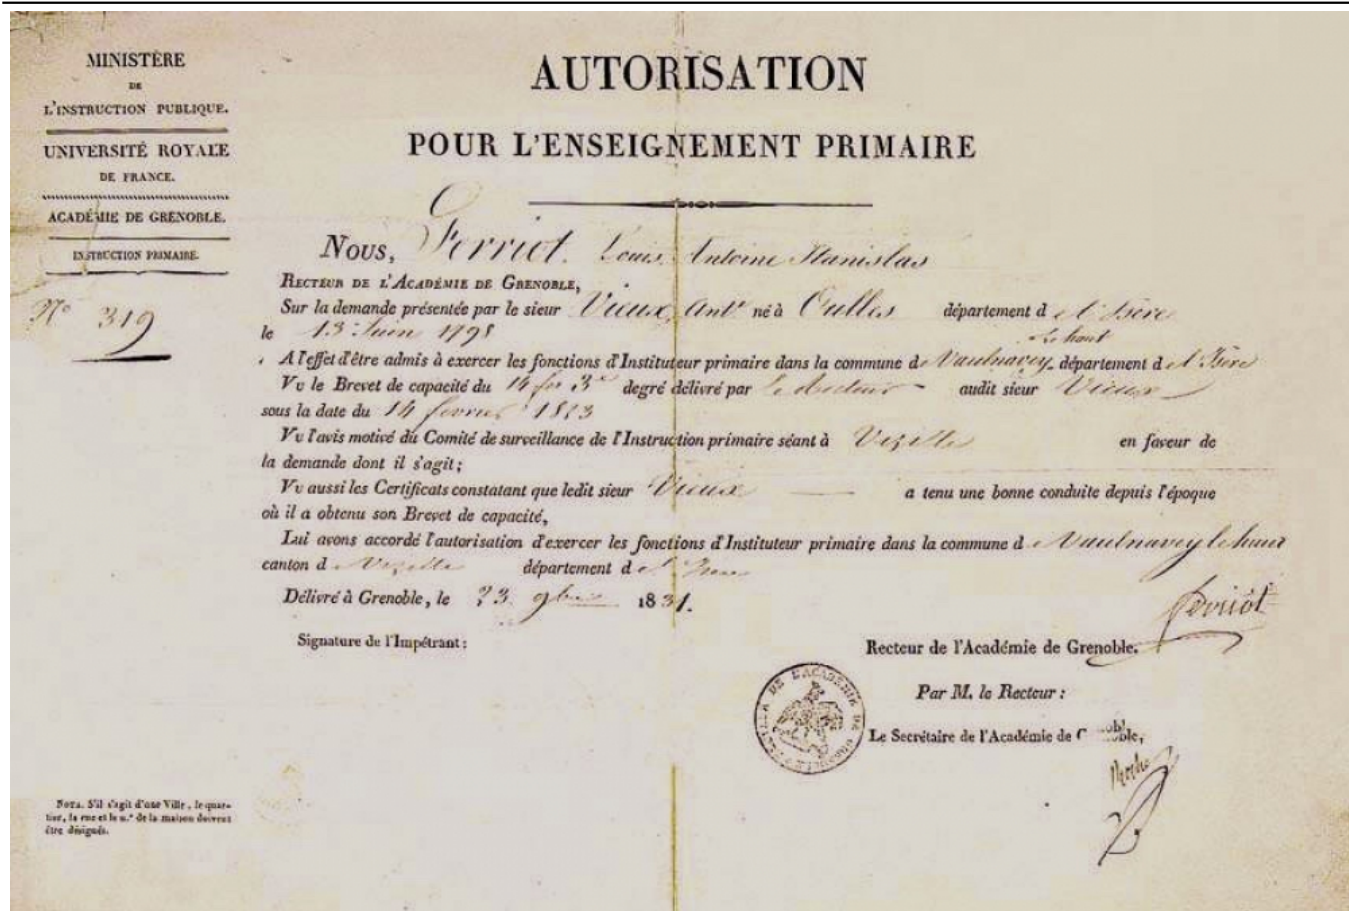 MINISTÈRE
DE
L'INSTRUCTION PUBLIQUE.
UNIVERSITÉ ROYALE
DE FRANCE.
ACADÉMIE DE GRENOBLE.
INSTRUCTION PRIMAIRE.
N° 319
AUTORISATION
POUR L'ENSEIGNEMENT PRIMAIRE
Nous, Ferriot. Louis Antoine Stanislas
Recteur de l'Académie de Grenoble,
Sur la demande présentée par le sieur Vieux, Ant né à Oulles département d l'Isère
le 13 Juin 1798
le haut
A l'effet d'être admis à exercer les fonctions d'Instituteur primaire dans la commune d Vaulnavey, département d l'Isère
Vu le Brevet de capacité du 3 degré délivré par le Recteur audit sieur Vieux
sous la date du 14 fevrier 1823
Vu l'avis motivé du Comité de surveillance de l'Instruction primaire séant à Vizille en faveur de
la demande dont il s'agit;
Vu aussi les Certificats constatant que ledit sieur Vieux a tenu une bonne conduite depuis l'époque
où il a obtenu son Brevet de capacité,
Lui avons accordé l'autorisation d'exercer les fonctions d'Instituteur primaire dans la commune d Vaulnavey le haut
canton d Vizille département d l'Isère
Délivré à Grenoble, le 23 9bre 1831.
Ferriot
Signature de l'Impétrant:
Recteur de l'Académie de Grenoble.
Par M. le Recteur:
Le Secrétaire de l'Académie de Grenoble,
Nota. S'il s'agit d'une Ville, le quar-
tier, la rue et le n.° de la maison doivent
être désignés.